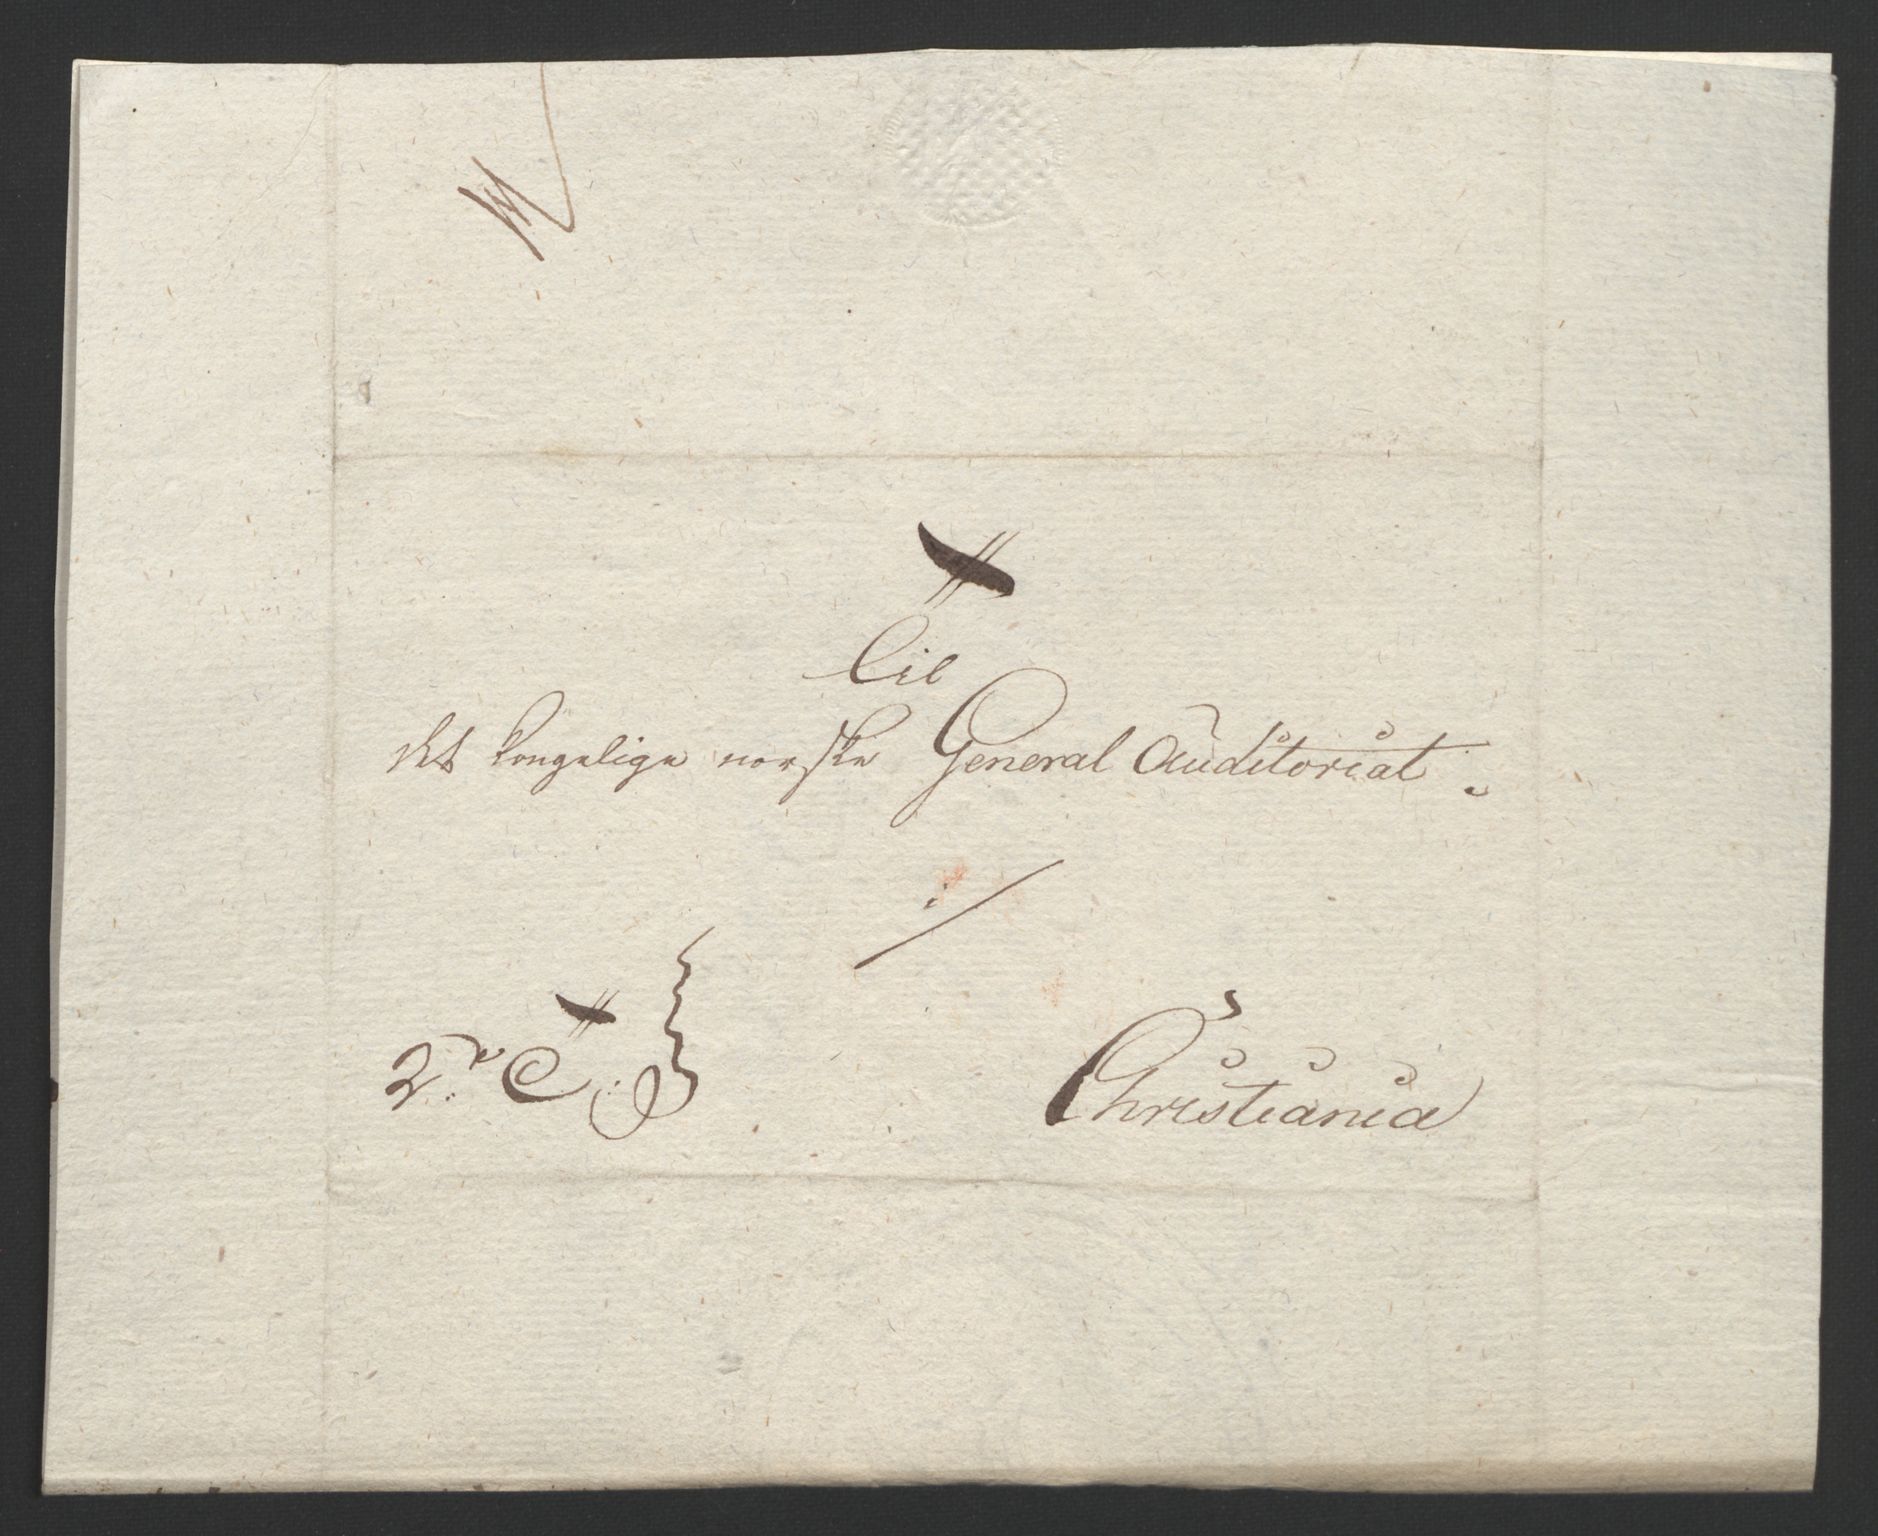 Til
det kongelige norske General Auditoriat
i
Christiania